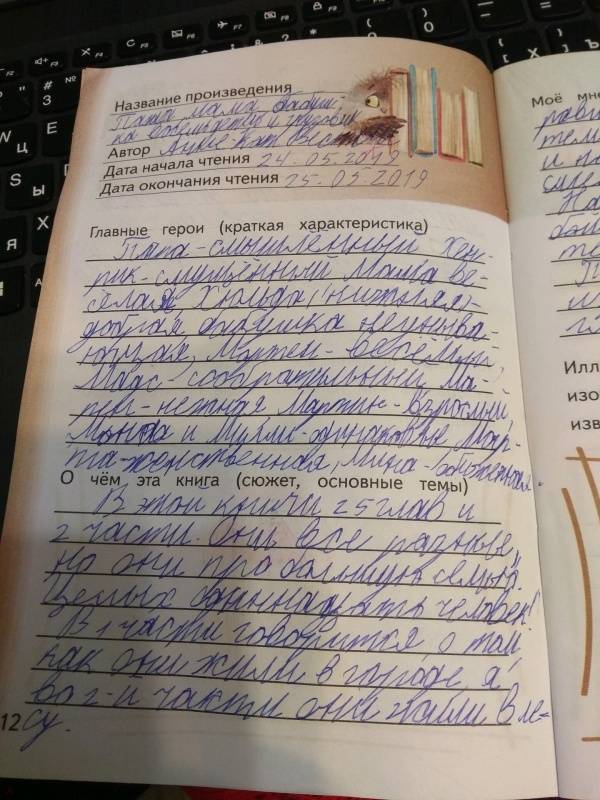 Название произведения
Папа мама бабуш-
ка восемь детей и грузовик
Автор Анне-Кат. Вестли
Дата начала чтения 24.05.2019
Дата окончания чтения 25.05.2019
Главные герои (краткая характеристика)
Папа-смышленный Хен-
рик-смущённый Мама ве-
сёлая Хюльда,
добрая бабушка неуныва-
ющая, Мортен-весёлый,
Мадс сообразительный Ма-
рен-нежная Мартин-взрослый,
Мона и Милли-одинаковые, Мар-
та-женственная, Мина-
О чём эта книга (сюжет, основные темы)
В этой книги 25 глав и
2 части. Они все разные,
но они про большую семью.
Целых одиннадцать человек!
В 1 части говорится о том,
как они жили в городе, я
во 2-й части они жили в ле-
су.
12
Моё мне
рави
тем
и по
Илл
изо
изв